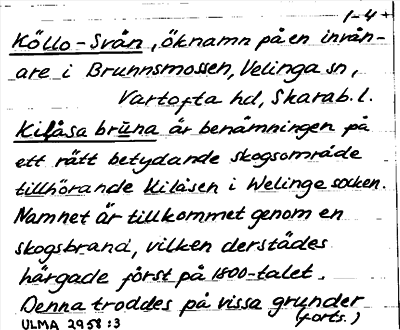 1-4+
Köllo-Svån, öknamn på en invån-
are i Brunnsmossen, Velinga sn,
Vartofta hd, Skarab. l.
Kilåsa bruna är benämningen på
ett rätt betydande skogsområde
tillhörande Kilåsen i Welinge socken.
Namnet är tillkommet genom en
skogsbrand, vilken derstädes
härgade först på 1800-talet.
Denna troddes på vissa grunder
(forts.)
ULMA 2958:3